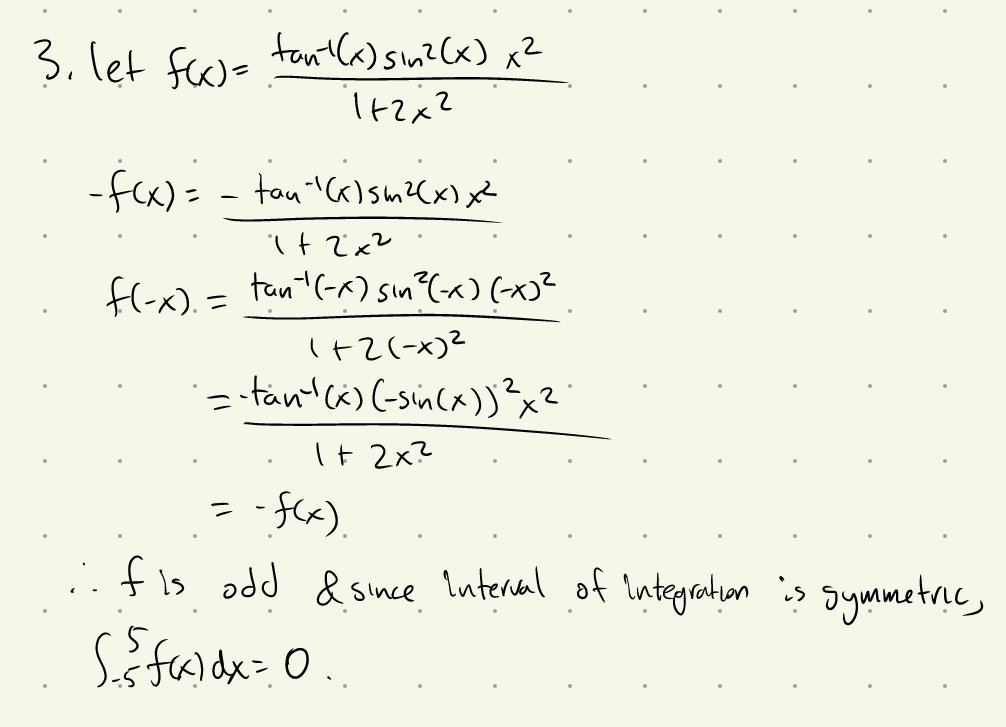 3. let f(x) = tan⁻¹(x) sin²(x) x² / 1+2x²
-f(x) = - tan⁻¹(x) sin²(x) x² / 1 + 2x²
f(-x) = tan⁻¹(-x) sin²(-x) (-x)² / 1 + 2(-x)²
= -tan⁻¹(x) (-sin(x))² x² / 1 + 2x²
= -f(x)
∴ f is odd & since interval of integration is symmetric,
∫₋₅⁵ f(x) dx = 0.